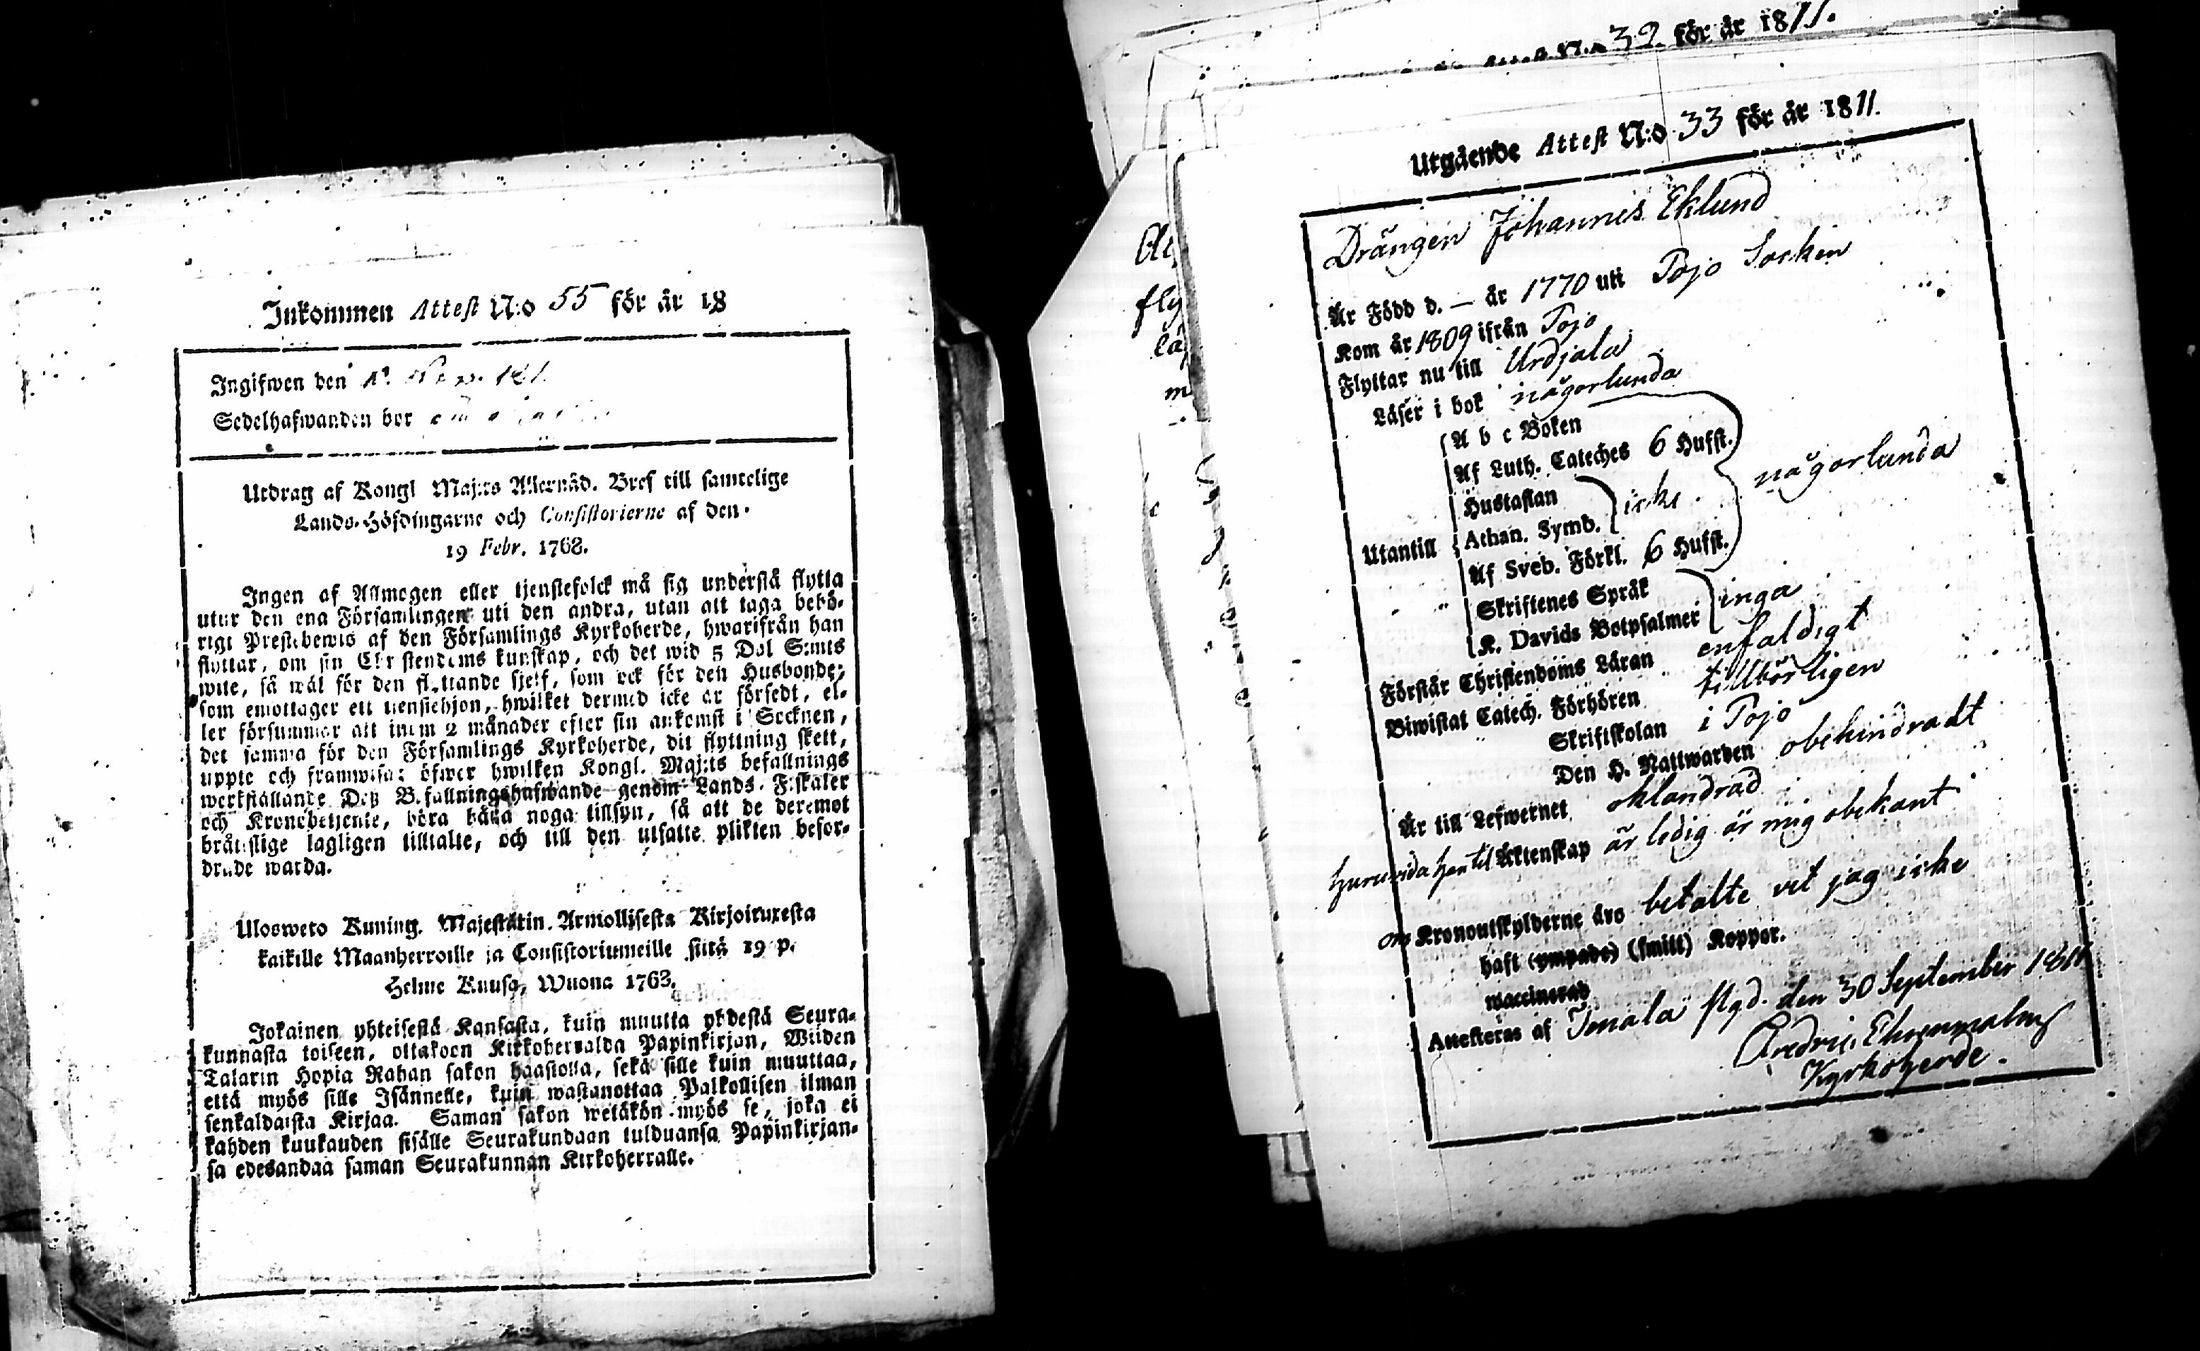 Inkommen Attest N:o 55 för år 18
Ingifwen den
Sedelhafwanden bor
Utdrag af Kongl Maj:ts Allernåd. Bref till samtelige
Lands-Höfdingarne och Consistorierne af den
19 Febr. 1768.
Ingen af Allmogen eller tjenstefolck må sig understå flytta
utur den ena Församlingen uti den andra, utan att taga behö-
rigt Prestebewis af den Församlings Kyrkoherde, hwarifrån han
flyttar, om sin Christendoms kunskap, och det wid 5 Dal S:mts
wite, så wäl för den flyttande sjelf, som ock för den Husbonde,
som emottager ett tienstehjon, hwilket dermed icke är försedt, el-
ler försummar att inom 2 månader efter sin ankomst i Socknen,
det samma för den Församlings Kyrkoherde, dit flyttning skett,
uppte och framwisa: öfwer hwilken Kongl. Maj:ts befallnings
werkställande Deß Befallningshafwande genom Lands-Fiskaler
och Kronobetjente, böra hålla noga tillsyn, så att de deremot
bråttslige lagligen tilltalte, och till den utsatte plikten befor-
drade warda.
Ulosweto Kuning. Majestätin Armollisesta Kirjoituxesta
kaikille Maanherroille ja Consistoriumeille siitä 19 p.
Helme Kuusa, Wuona 1763.
Jokainen yhteisestä Kansasta, kuin muutta yhdestä Seura-
kunnasta toiseen, ottakoon Kirkoherralda Papinkirjan, Wiiden
Talarin Hopia Rahan sakon haastolla, sekä sille kuin muuttaa,
että myös sille Isännelle, kuin wastanottaa Palkollisen ilman
senkaldaista Kirjaa. Saman sakon wetäkön myös se, joka ei
kahden kuukauden sisälle Seurakundaan tulduansa Papinkirjan-
sa edesandaa saman Seurakunnan Kirkoherralle.
N:o 32 för år 1811.
Utgående Attest N:o 33 för år 1811.
Drängen Johannes Eklund
Är Född d. — år 1770 uti Pojo Socken
Kom år 1809 ifrån Pojo
Flyttar nu till Urdjala
Läser i bok någorlunda
A b c Boken
Af Luth. Cateches 6 Hufst.
Hustaflan
någorlunda
Athan. Symb. icke
Utantill
Af Sveb. Förkl. 6 Hufst.
Skriftenes Språk
K. Davids Botpsalmer inga
Förstår Christendoms Läran enfaldigt
Biwistat Catech. Förhören tillbörligen
Skriftskolan i Pojo
Den H. Nattwarden obehindradt
Är till Lefwernet oklandrad
huruvida han til Äktenskap är ledig är mig obekant
om Kronoutskylderne äro betalte vet jag icke
haft (ympade) (smitt) Koppor.
waccinerad
Attesteras af Tenala pgd. den 30 September 1811
Fredric Ehrenmalm
Kyrkoherde.